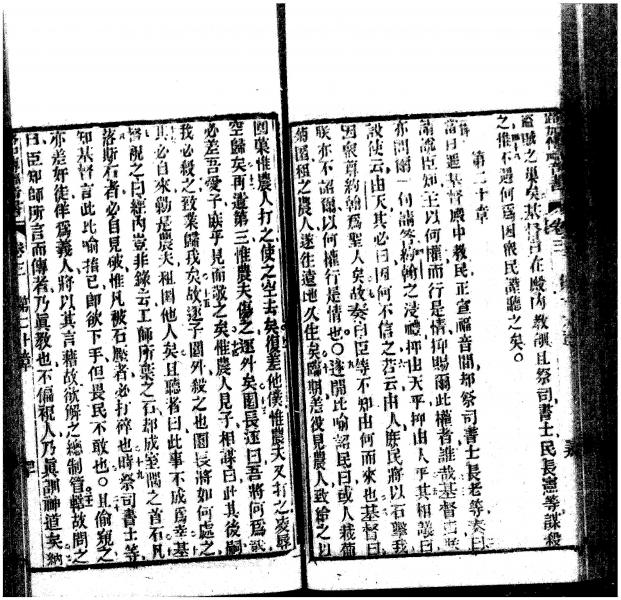 盜賊之巢矣基督日在殿內教訓且祭司書士民長憲等謀殺
之惟不遇何為因衆民謹聽之矣。
第二十章
當日遇基督殿中教民正宣福音間却祭司書士長老等奏曰
請諭臣知主以何權而行是情抑賜爾此權者誰哉基督曰
亦問爾一句請答約翰之浸禮抑由天乎抑由人乎其相議曰
設使云由天其必曰因何不信之若云由人庶民將以石擊我
因衆尊約翰為聖人矣故奏曰臣等不知由何而來也基督曰
朕亦不詔爾以何權行是情也。遂開此喻認民曰或人栽葡
萄園租之農人遂往遠地久住矣臨期差役見農人致給之以
園菓惟農人打之使之空去矣復差他僕惟農夫又打之凌辱
空歸矣再遣第三惟農夫傷之逐外矣園長遂曰吾將何為
必差吾愛子庶乎見而敬之矣惟農人見子相謀曰此其後嗣
我必殺之致業歸我矣故逐子園外殺之也園長將如何處之
其必自來勦是農夫租園他人矣且聽者曰此事不成為幸基
督視之曰經內豈非錄云工師所棄之石却成室隅之首石凡
落斯石者必自見破惟凡被石壓者必打碎也時祭司書士等
知基督言此比喻指己卽欲下手但畏民不敢也。且偷窺之
亦差奸徒佯為義人將以其言藉故欲解之總制管轄故問之
曰臣知師所言而傳者乃眞教也不偏視人乃眞訓神道矣納